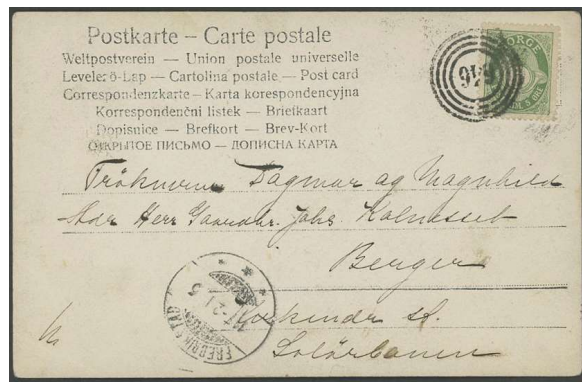 Postkarte – Carte postale
Weltpostverein — Union postale universelle
Levelező-Lap — Cartolina postale — Post card
Correspondenzkarte — Karta korespondencyjna
Korrespondenční listek — Briefkaart
Dopisnice — Brefkort — Brev-Kort
ОТКРЫТОЕ ПИСЬМО — ДОПИСНА КАРТА
NORGE
5 ØRE
Frøknerne Dagmar og Magnhild
Adr Herr Gaardbr. Johs Kolnesset
Berger
st.
Solørbanen
FREDRIKSTAD